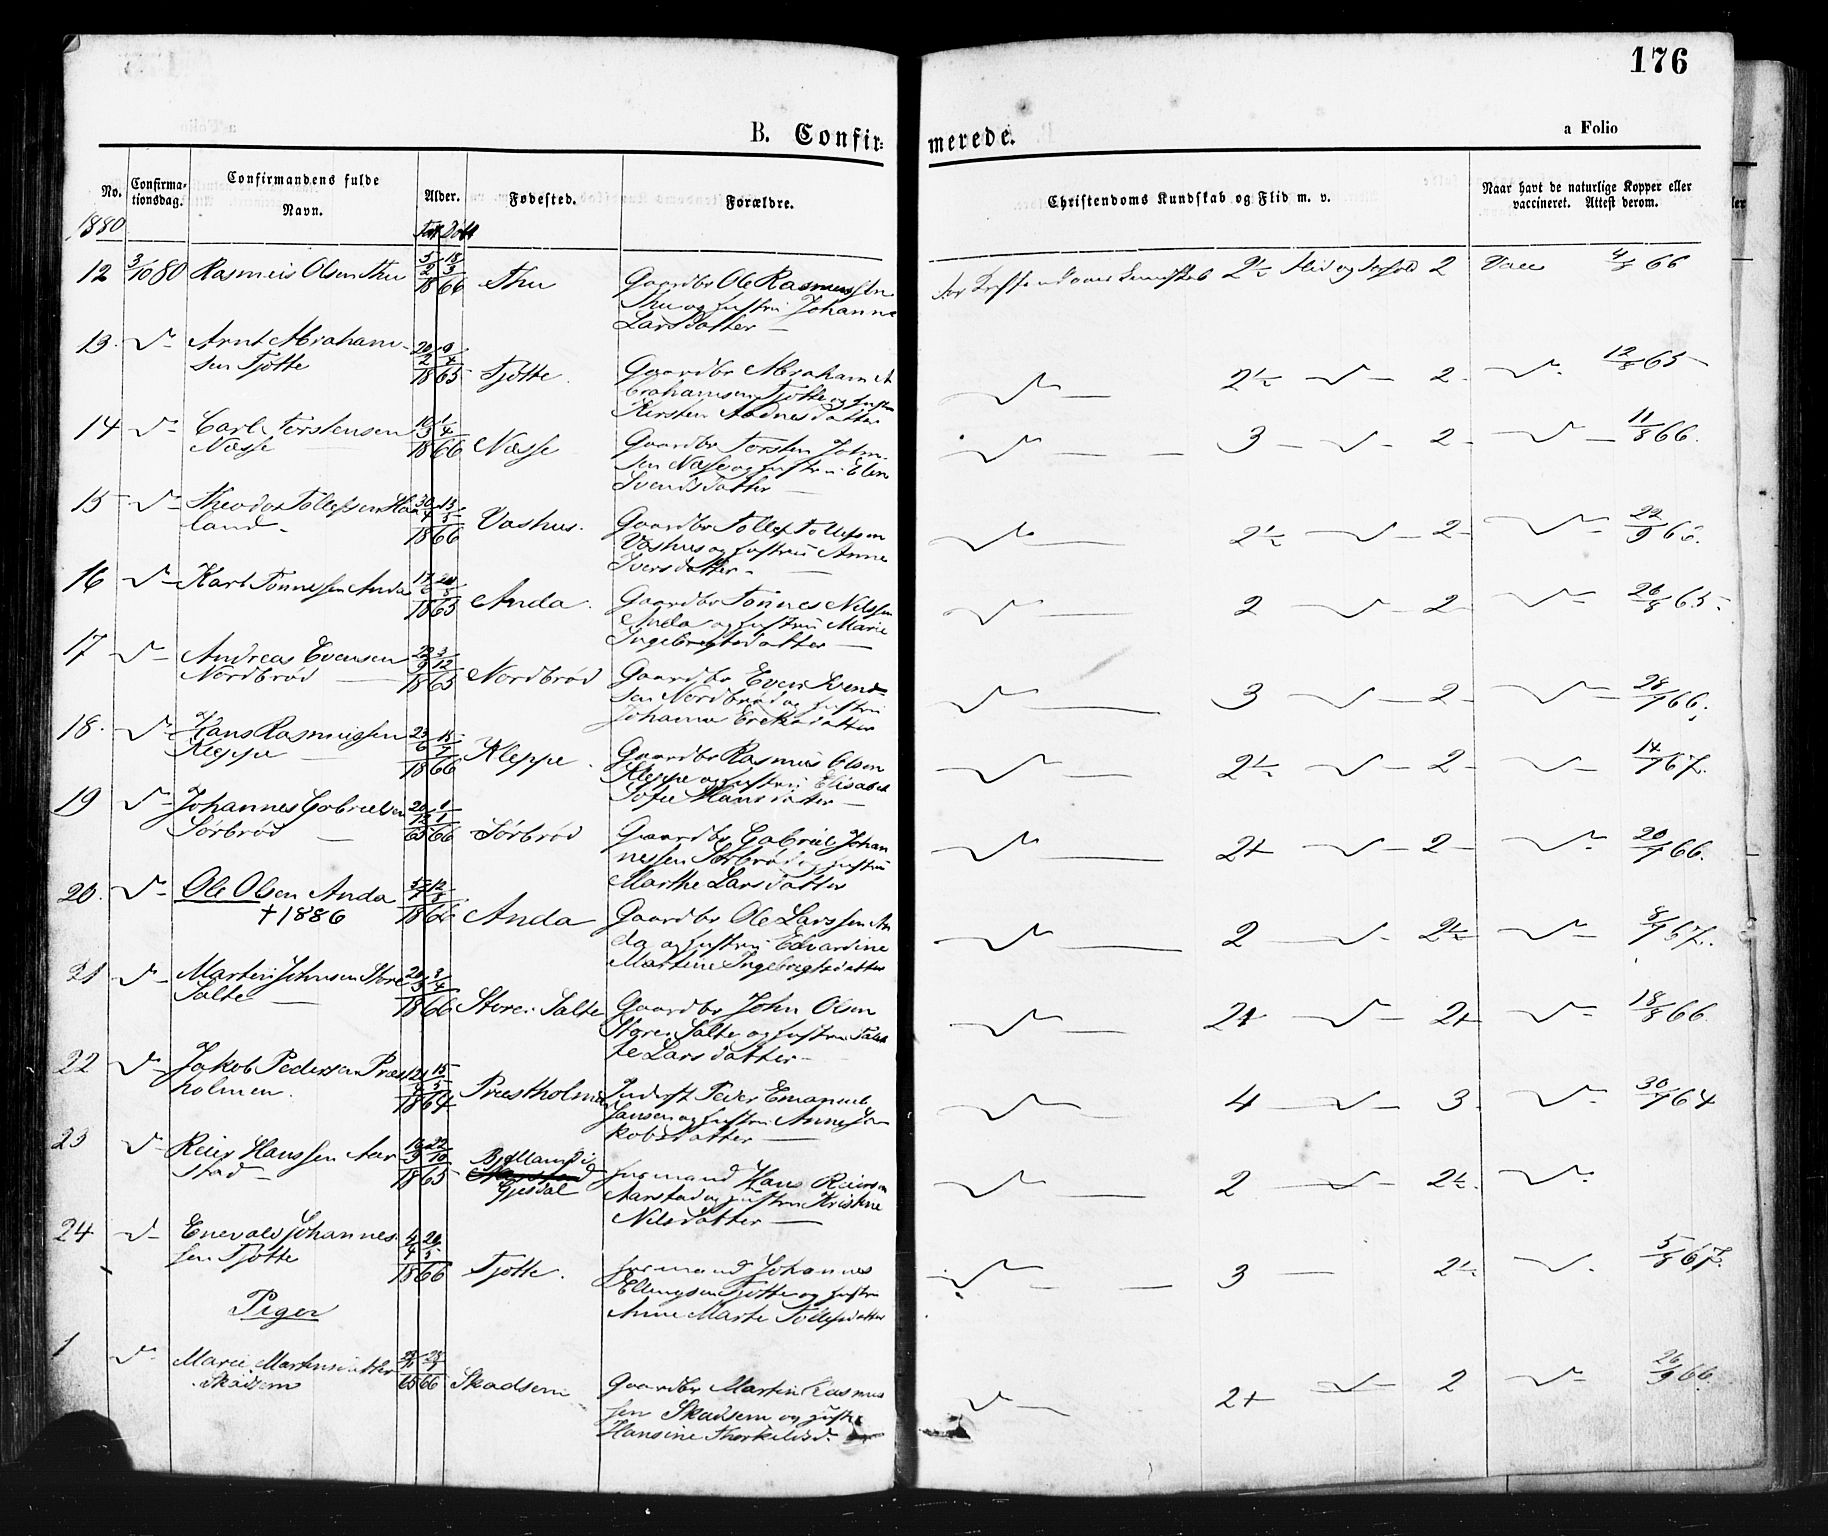 176
B. Confir-
merede.
a Folio
No.
Confirma-
tionsdag.
Confirmandens fulde
Navn.
Alder.
Fødested.
Forældre.
Christendoms Kundskab og Flid m. v.
Naar havt de naturlige Kopper eller
vaccineret. Attest derom.
1880
Død Døbt
12 3/10 80 Rasmus Olsen Thu 5/2 18/3 1866 Thu Gaardbr Ole Rasmussen
Thu og hustru Johanne
Larsdatter
2½ Flid og Forhold 2 Vacc 4/8 66
13 Arnt Abraham-
sen Tjøtte 1865 Tjøtte Gaardbr Abraham A
brahamsen Tjøtte og hustru
Kirsten Aadnesdatter
2½ 2 12/8 65
14 Carl Torstensen
Næsse 1866 Næsse Gaardbr Torsten John-
sen Næsse og hustru Elen
Svendsdatter
3 2 11/8 66.
15 Theodor Tollefsen Haa
land 30/4 1866 Vashus. Gaardbr Tollef Tollefsen
Vashus og hustru Anne
Iversdatter
2½ 2 22/9
16 Karl Tønnessen Anda 1865 Anda. Gaardbr Tønnes Nilssen
Anda og hustru Marie
Ingebregtsdatter
2 2 26/8 65
17 Andreas Evensen
Nordbrød 3/12 1865 Nordbrød Gaardbr Even Svend-
sen Nordbrød og hustru
Johanna Eriksdatter
3 2 28/9 66.
18. Hans Rasmussen
Kleppe 23/6 15/7 1866 Kleppe. Gaardbr Rasmus Olsen
Kleppe og hustru Elisabet
Sofie Hansdatter
2½ 2 67.
19 Johannes Gabrielsen
Sørbrød 65 66 Sørbrød Gaardbr Gabriel Johan
nessen Sørbrød og hustru
Marthe Larsdatter
2+ 2 66.
20. Ole Olsen Anda
† 1886 12/8 1866 Anda Gaardbr Ole Larssen An
da og hustru Edvardine
Martine Ingebregtsdatter
2 2½ 67.
21 Martin Johnsen Store
Salte 1866 Store Salte Gaardbr John Olsen
Store Salte og hustru
Larsdatter
2+ 2+ 18/8 66.
22 Jakob Pedersen Præst
holmen. 15/5 1864 Præstholmen Inderst Peder Emanuel
Jansen og hustru Anne Ja
kobsdatter
4 3. 64
23 Reier Hanssen Aar
stad 22/10 1865 Bjelland i
Gjesdal Huusmand Hans Reiersen
Aarstad og hustru Kristine
Nilsdatter
2 2½
24 Enevald Johannes
sen Tjøtte 1866 Tjøtte. Huusmand Johannes
Ellingsen Tjøtte og hustru
Anne Marte Tollefsdatter
3 2½ 5/8 67.
Piger
1 Marie Martinsdatter
Skadsem 65 66 Skadsem Gaardbr Martin Rasmus
sen Skadsem og hustr
Hansine Thorkildsd.
2+ 2 26/9 66.